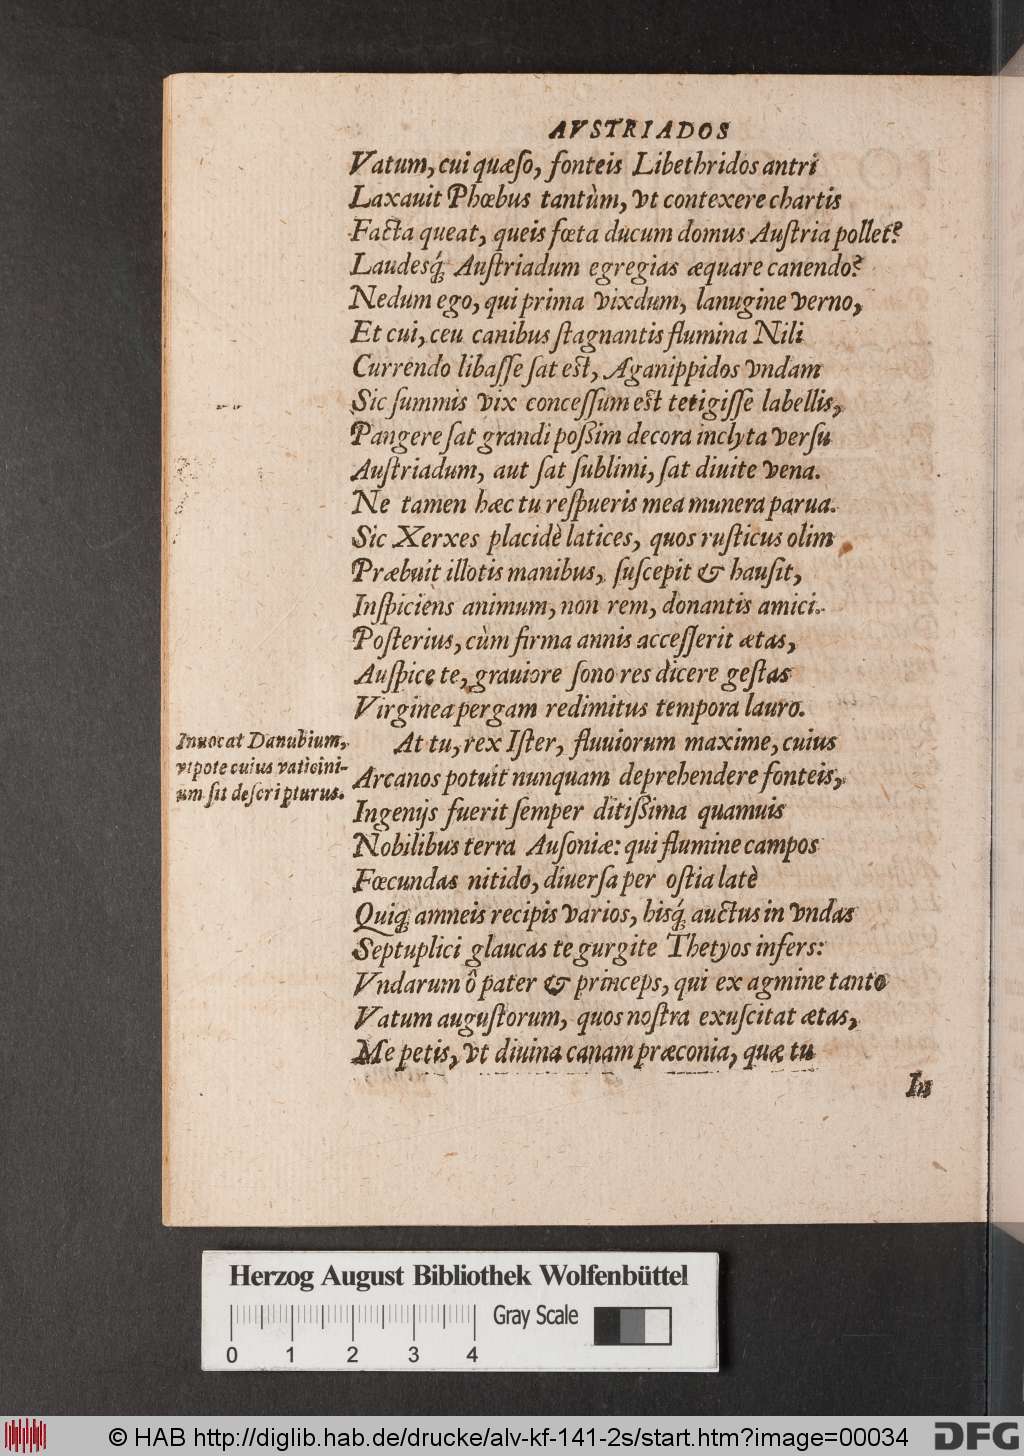 AVSTRIADOS
Vatum, cui quæſo, fonteis Libethridos antri
Laxauit Phœbus tantùm, vt contexere chartis
Facta queat, queis fœta ducum domus Auſtria pollet?
Laudesq́; Auſtriadum egregias æquare canendo?
Nedum ego, qui prima vixdum, lanugine verno,
Et cui, ceu canibus ſtagnantis flumina Nili
Currendo libaſſe ſat eſt, Aganippidos vndam
Sic ſummis vix conceſſum eſt tetigiſſe labellis,
Pangere ſat grandi poßim decora inclyta verſu
Auſtriadum, aut ſat ſublimi, ſat diuite vena.
Ne tamen hæc tu reſpueris mea munera parua.
Sic Xerxes placidè latices, quos ruſticus olim
Præbuit illotis manibus, ſuſcepit & hauſit,
Inſpiciens animum, non rem, donantis amici.
Poſterius, cùm firma annis acceſſerit ætas,
Auſpice te, grauiore ſono res dicere geſtas
Virginea pergam redimitus tempora lauro.
Inuocat Danubium,
vtpote cuius vaticini-
um ſit deſcripturus.
At tu, rex Iſter, fluuiorum maxime, cuius
Arcanos potuit nunquam deprehendere fonteis,
Ingenijs fuerit ſemper ditißima quamuis
Nobilibus terra Auſoniæ: qui flumine campos
Fœcundas nitido, diuerſa per oſtia latè
Quiq; amneis recipis varios, bisq́; auctus in vndas
Septuplici glaucas te gurgite Thetyos infers:
Vndarum ô pater & princeps, qui ex agmine tanto
Vatum auguſtorum, quos noſtra exuſcitat ætas,
Me petis, vt diuina canam præconia, quæ tu
In
Herzog August Bibliothek Wolfenbüttel
Gray Scale
0 1 2 3 4
© HAB http://diglib.hab.de/drucke/alv-kf-141-2s/start.htm?image=00034
DFG